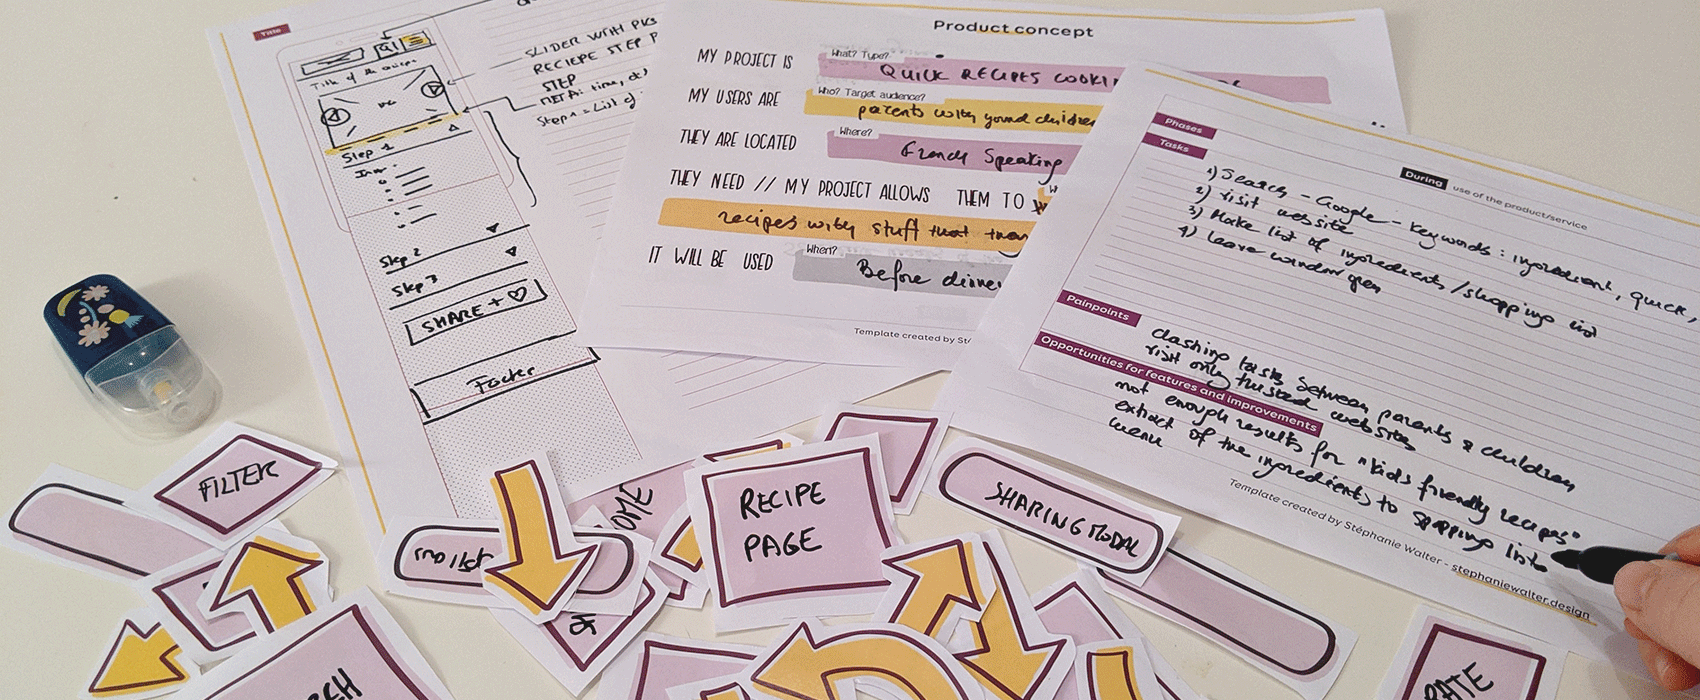 Title
Title of the recipe
Step 1
Step 2
Step 3
SHARE +
Footer
SLIDER WITH
RECIEPE STEP
STEP
META: time,
Step 1 = List of
Product concept
MY PROJECT IS
What? Type?
QUICK RECIPES
MY USERS ARE
Who? Target audience?
parents with young children
THEY ARE LOCATED
Where?
French Speaking
THEY NEED // MY PROJECT ALLOWS THEM TO
recipes with stuff that
IT WILL BE USED
When?
Before
Template created by
Phases
Tasks
During use of the product/service
1) Search - Google - keywords: ingredient, quick,
2) visit website
3) Make list of ingredients / shopping list
4) Leave window open
Painpoints
clashing tasks between parents & children
visit only trusted website
Opportunities for features and improvements
not enough results for "kids friendly recipes"
extract of the ingredients to shopping list
menu
Template created by Stéphanie Walter - stephaniewalter.design
FILTER
RECIPE
PAGE
SHARING MODAL